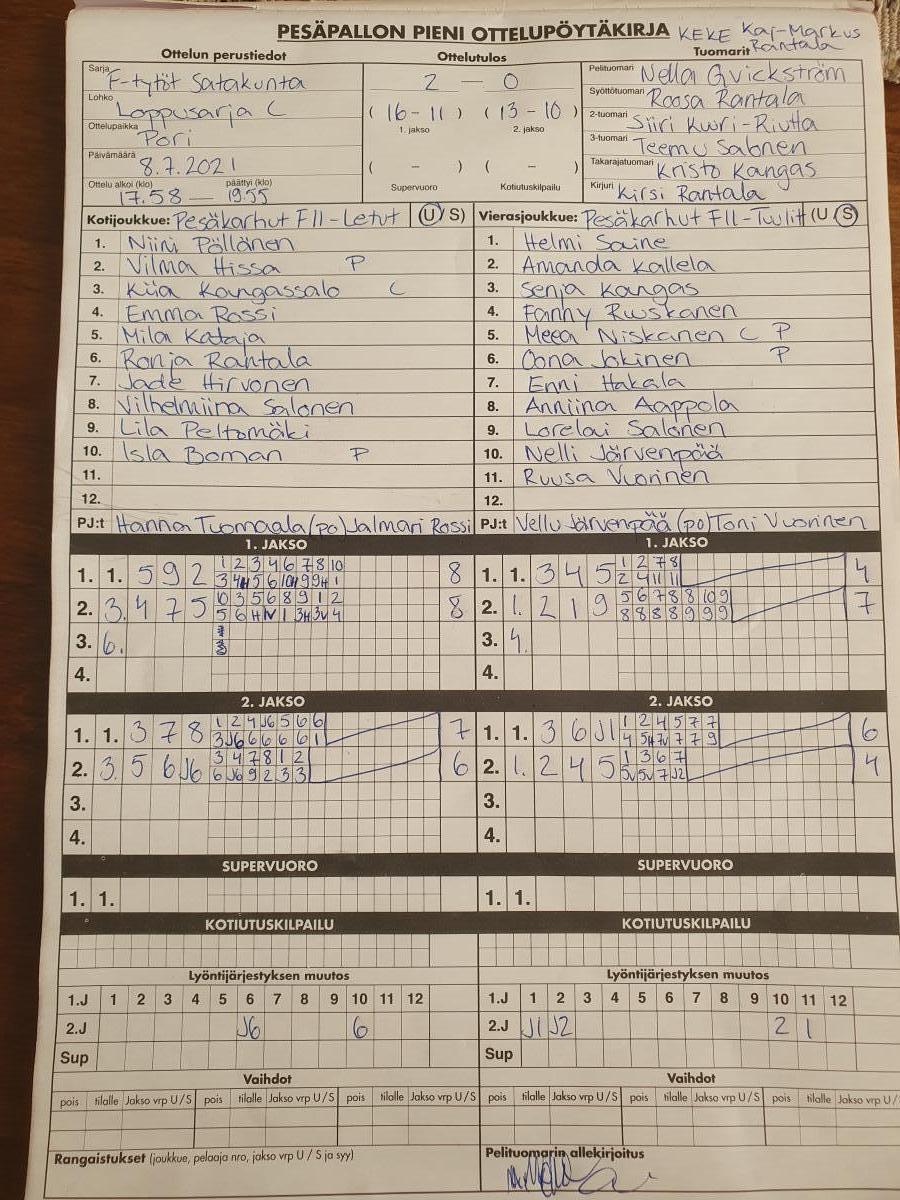 PESÄPALLON PIENI OTTELUPÖYTÄKIRJA KEKE Kaj-Markus Rantala
Ottelun perustiedot Ottelutulos Tuomarit
Sarja F-tytöt Satakunta
Lohko Loppusarja C
Ottelupaikka Pori
Päivämäärä 8.7.2021
Ottelu alkoi (klo) päättyi (klo)
17.58 — 19.55
2 — 0
( 16-11 ) ( 13-10 )
1. jakso 2. jakso
( - ) ( - )
Supervuoro Kotiutuskilpailu
Pelituomari Nella Qvickström
Syöttötuomari Roosa Rantala
2-tuomari Siiri Kuuri-Riutta
3-tuomari Teemu Salonen
Takarajatuomari Kristo Kangas
Kirjuri Kirsi Rantala
Kotijoukkue: Pesäkarhut F11-Letut (U/S)
1. Niini Pöllänen
2. Vilma Hissa P
3. Kiia Kangassalo C
4. Emma Rossi
5. Mila Kataja
6. Ronja Rantala
7. Jade Hirvonen
8. Vilhelmiina Salonen
9. Lila Peltomäki
10. Isla Boman P
11.
12.
PJ:t Hanna Tuomaala (po) Jalmari Rossi
Vierasjoukkue: Pesäkarhut F11-Tuulit (U/S)
1. Helmi Saine
2. Amanda Kallela
3. Senja Kangas
4. Fanny Ruuskanen
5. Meea Niskanen C P
6. Oona Jokinen P
7. Enni Hakala
8. Anniina Aappola
9. Lorelai Salonen
10. Nelli Järvenpää
11. Ruusa Vuorinen
12.
PJ:t Vellu Järvenpää (po) Toni Vuorinen
1. JAKSO
1. 1. 5 9 2 1 2 3 4 6 7 8 10 8
2. 3. 4 7 5 10 3 5 6 8 9 1 2 8
3. 6.
4.
1. JAKSO
1. 1. 3 4 5 1 2 7 8 4
2 4 11 11
2. 1. 2 1 9 5 6 7 8 8 10 9 7
8 8 8 8 9 9 9
3. 4.
4.
2. JAKSO
1. 1. 3 7 8 1 2 4 J6 5 6 6 7
3 J6 6 6 6 6 1
2. 3. 5 6 J6 3 4 7 8 1 2 6
6 J6 9 2 3 3
3.
4.
2. JAKSO
1. 1. 3 6 J1 1 2 4 5 7 7 6
2. 1. 2 4 5 1 3 6 7 4
5v 5v 7 J2
3.
4.
SUPERVUORO
1. 1.
SUPERVUORO
1. 1.
KOTIUTUSKILPAILU
KOTIUTUSKILPAILU
Lyöntijärjestyksen muutos
1.J 1 2 3 4 5 6 7 8 9 10 11 12
2.J J6 6
Sup
Lyöntijärjestyksen muutos
1.J 1 2 3 4 5 6 7 8 9 10 11 12
2.J J1 J2 2 1
Sup
Vaihdot
pois tilalle Jakso vrp U/S pois tilalle Jakso vrp U/S pois tilalle Jakso vrp U/S
Vaihdot
pois tilalle Jakso vrp U/S pois tilalle Jakso vrp U/S pois tilalle Jakso vrp U/S
Rangaistukset (joukkue, pelaaja nro, jakso vrp U / S ja syy)
Pelituomarin allekirjoitus